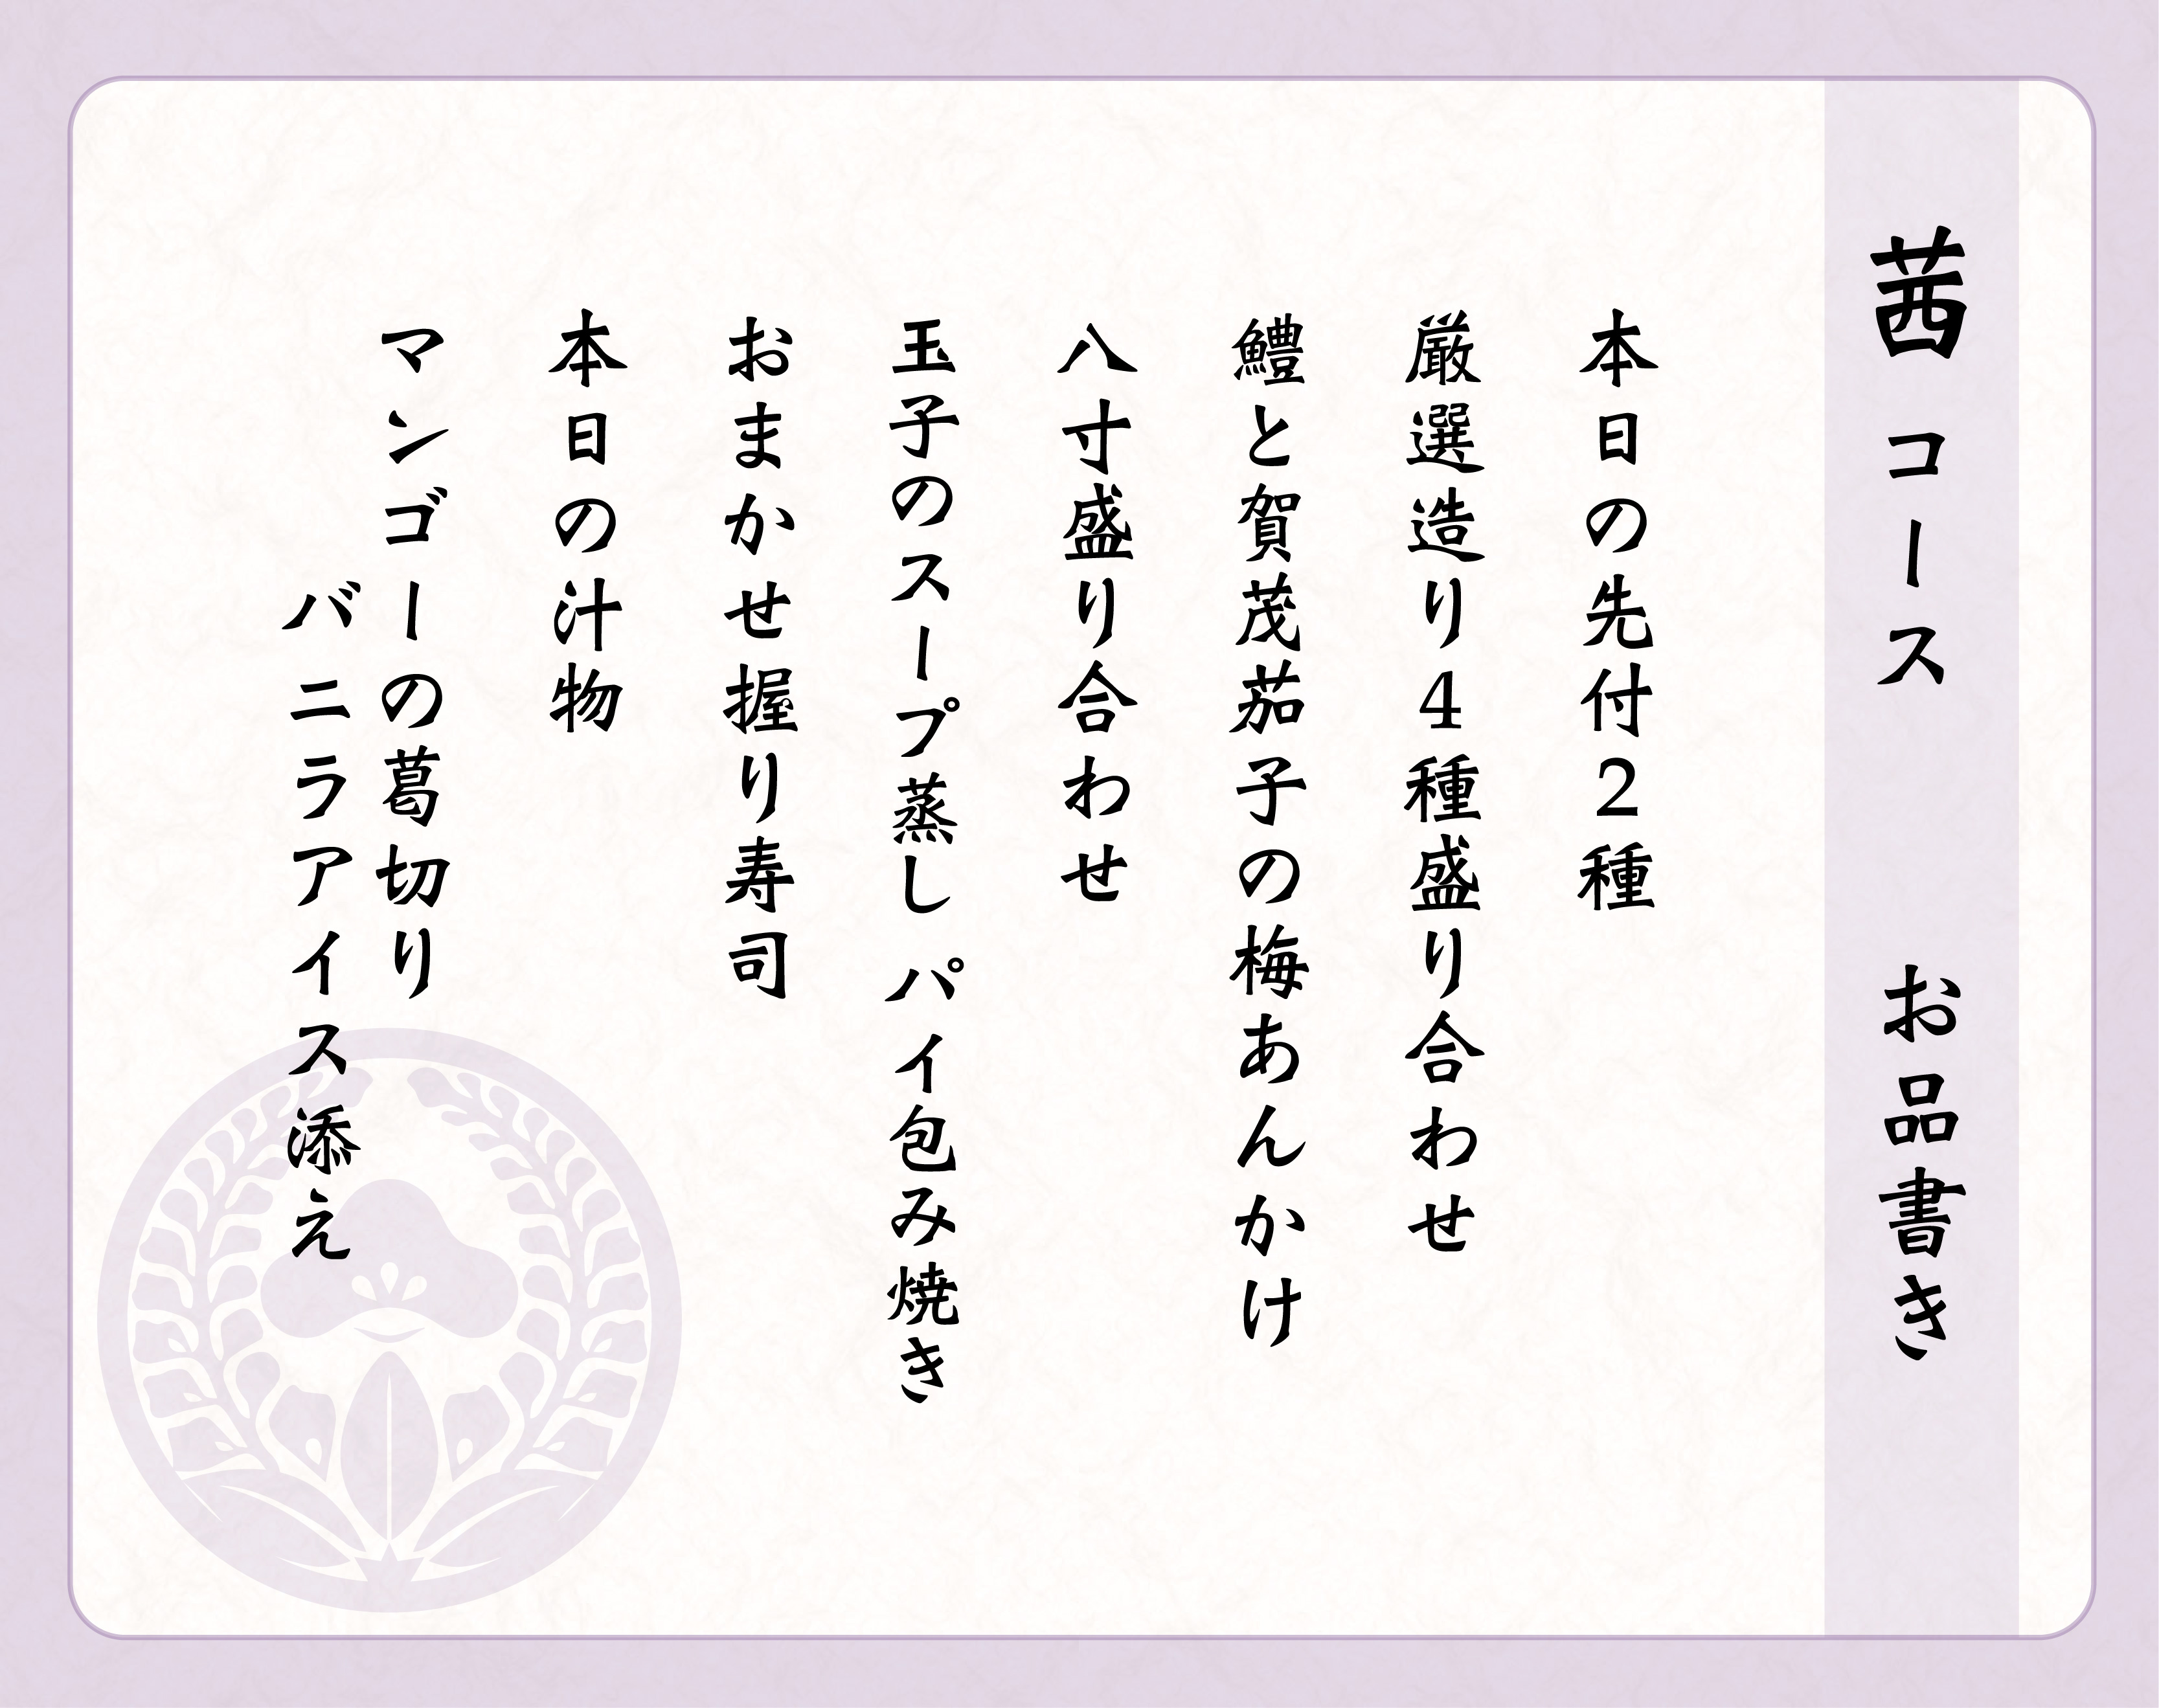 茜 コース　お品書き
本日の先付2種
厳選造り4種盛り合わせ
鱧と賀茂茄子の梅あんかけ
八寸盛り合わせ
玉子のスープ蒸し パイ包み焼き
おまかせ握り寿司
本日の汁物
マンゴーの葛切り
バニラアイス添え